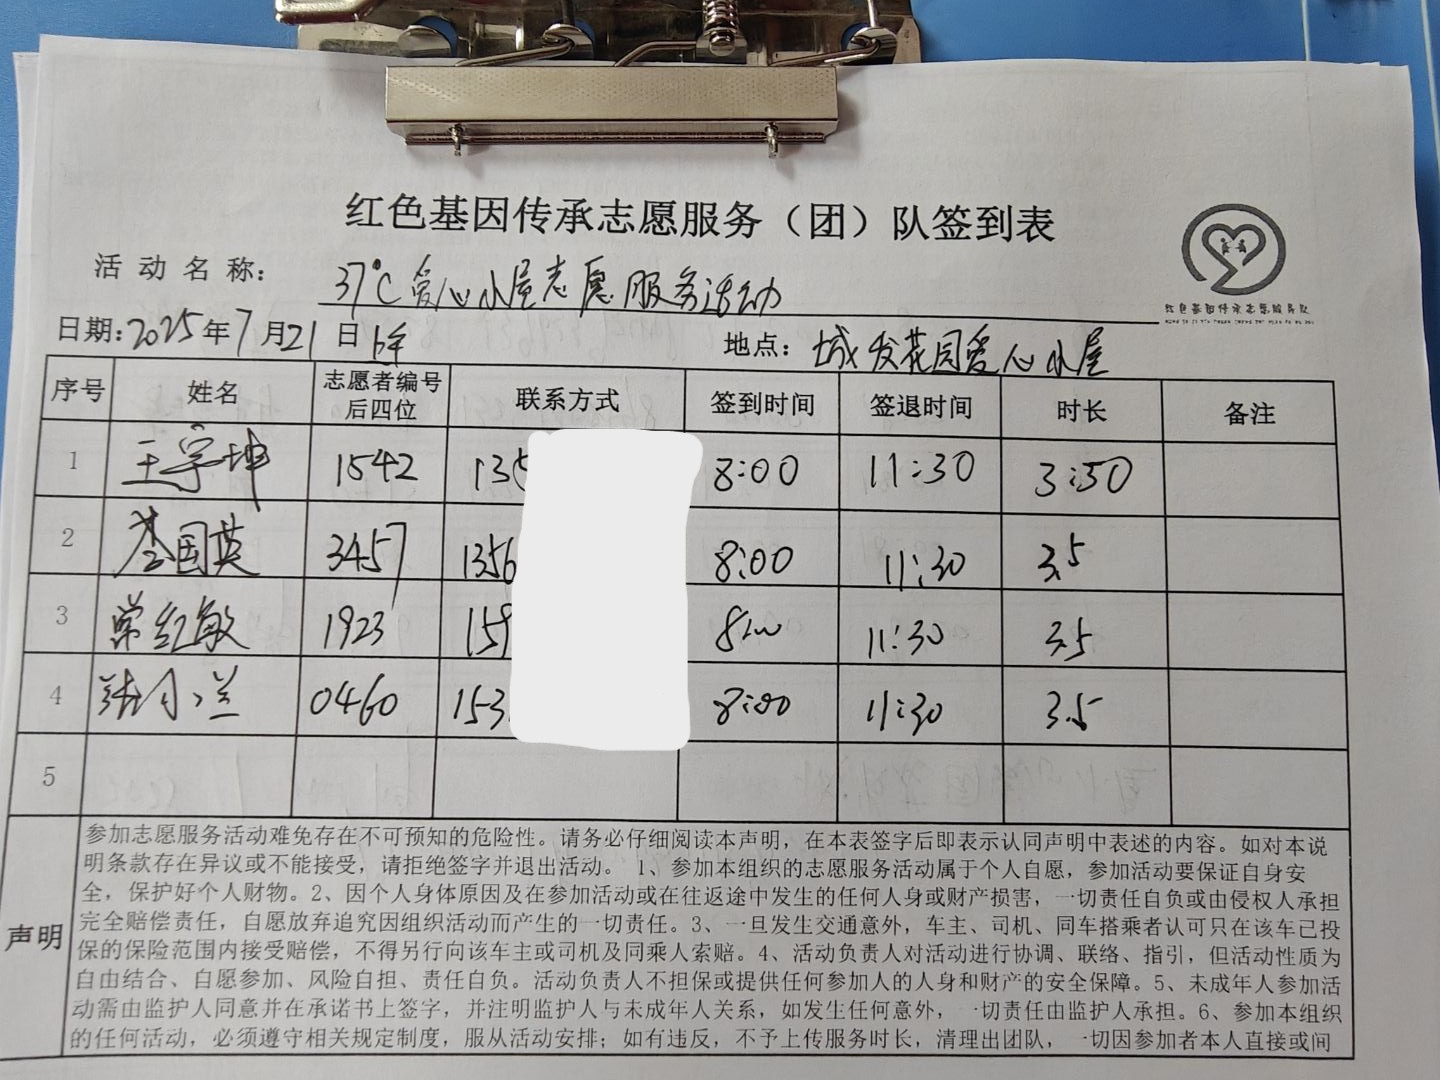 红色基因传承志愿服务（团）队签到表
红色基因传承志愿服务队
活动名称： 37℃爱心小屋志愿服务活动
日期：2025年7月21日 上午 地点：城发花园爱心小屋
序号 姓名 志愿者编号后四位 联系方式 签到时间 签退时间 时长 备注
1 王宇坤 1542 135 8:00 11:30 3:50
2 李国英 3457 1356 8:00 11:30 3.5
3 常红敏 1923 159 8:00 11:30 3.5
4 张小兰 0460 153 8:00 11:30 3.5
5
声明
参加志愿服务活动难免存在不可预知的危险性。请务必仔细阅读本声明，在本表签字后即表示认同声明中表述的内容。如对本说
明条款存在异议或不能接受，请拒绝签字并退出活动。 1、参加本组织的志愿服务活动属于个人自愿，参加活动要保证自身安
全，保护好个人财物。2、因个人身体原因及在参加活动或在往返途中发生的任何人身或财产损害，一切责任自负或由侵权人承担
完全赔偿责任，自愿放弃追究因组织活动而产生的一切责任。3、一旦发生交通意外，车主、司机、同车搭乘者认可只在该车已投
保的保险范围内接受赔偿，不得另行向该车主或司机及同乘人索赔。4、活动负责人对活动进行协调、联络、指引，但活动性质为
自由结合、自愿参加、风险自担、责任自负。活动负责人不担保或提供任何参加人的人身和财产的安全保障。5、未成年人参加活
动需由监护人同意并在承诺书上签字，并注明监护人与未成年人关系，如发生任何意外，一切责任由监护人承担。6、参加本组织
的任何活动，必须遵守相关规定制度，服从活动安排；如有违反，不予上传服务时长，清理出团队，一切因参加者本人直接或间